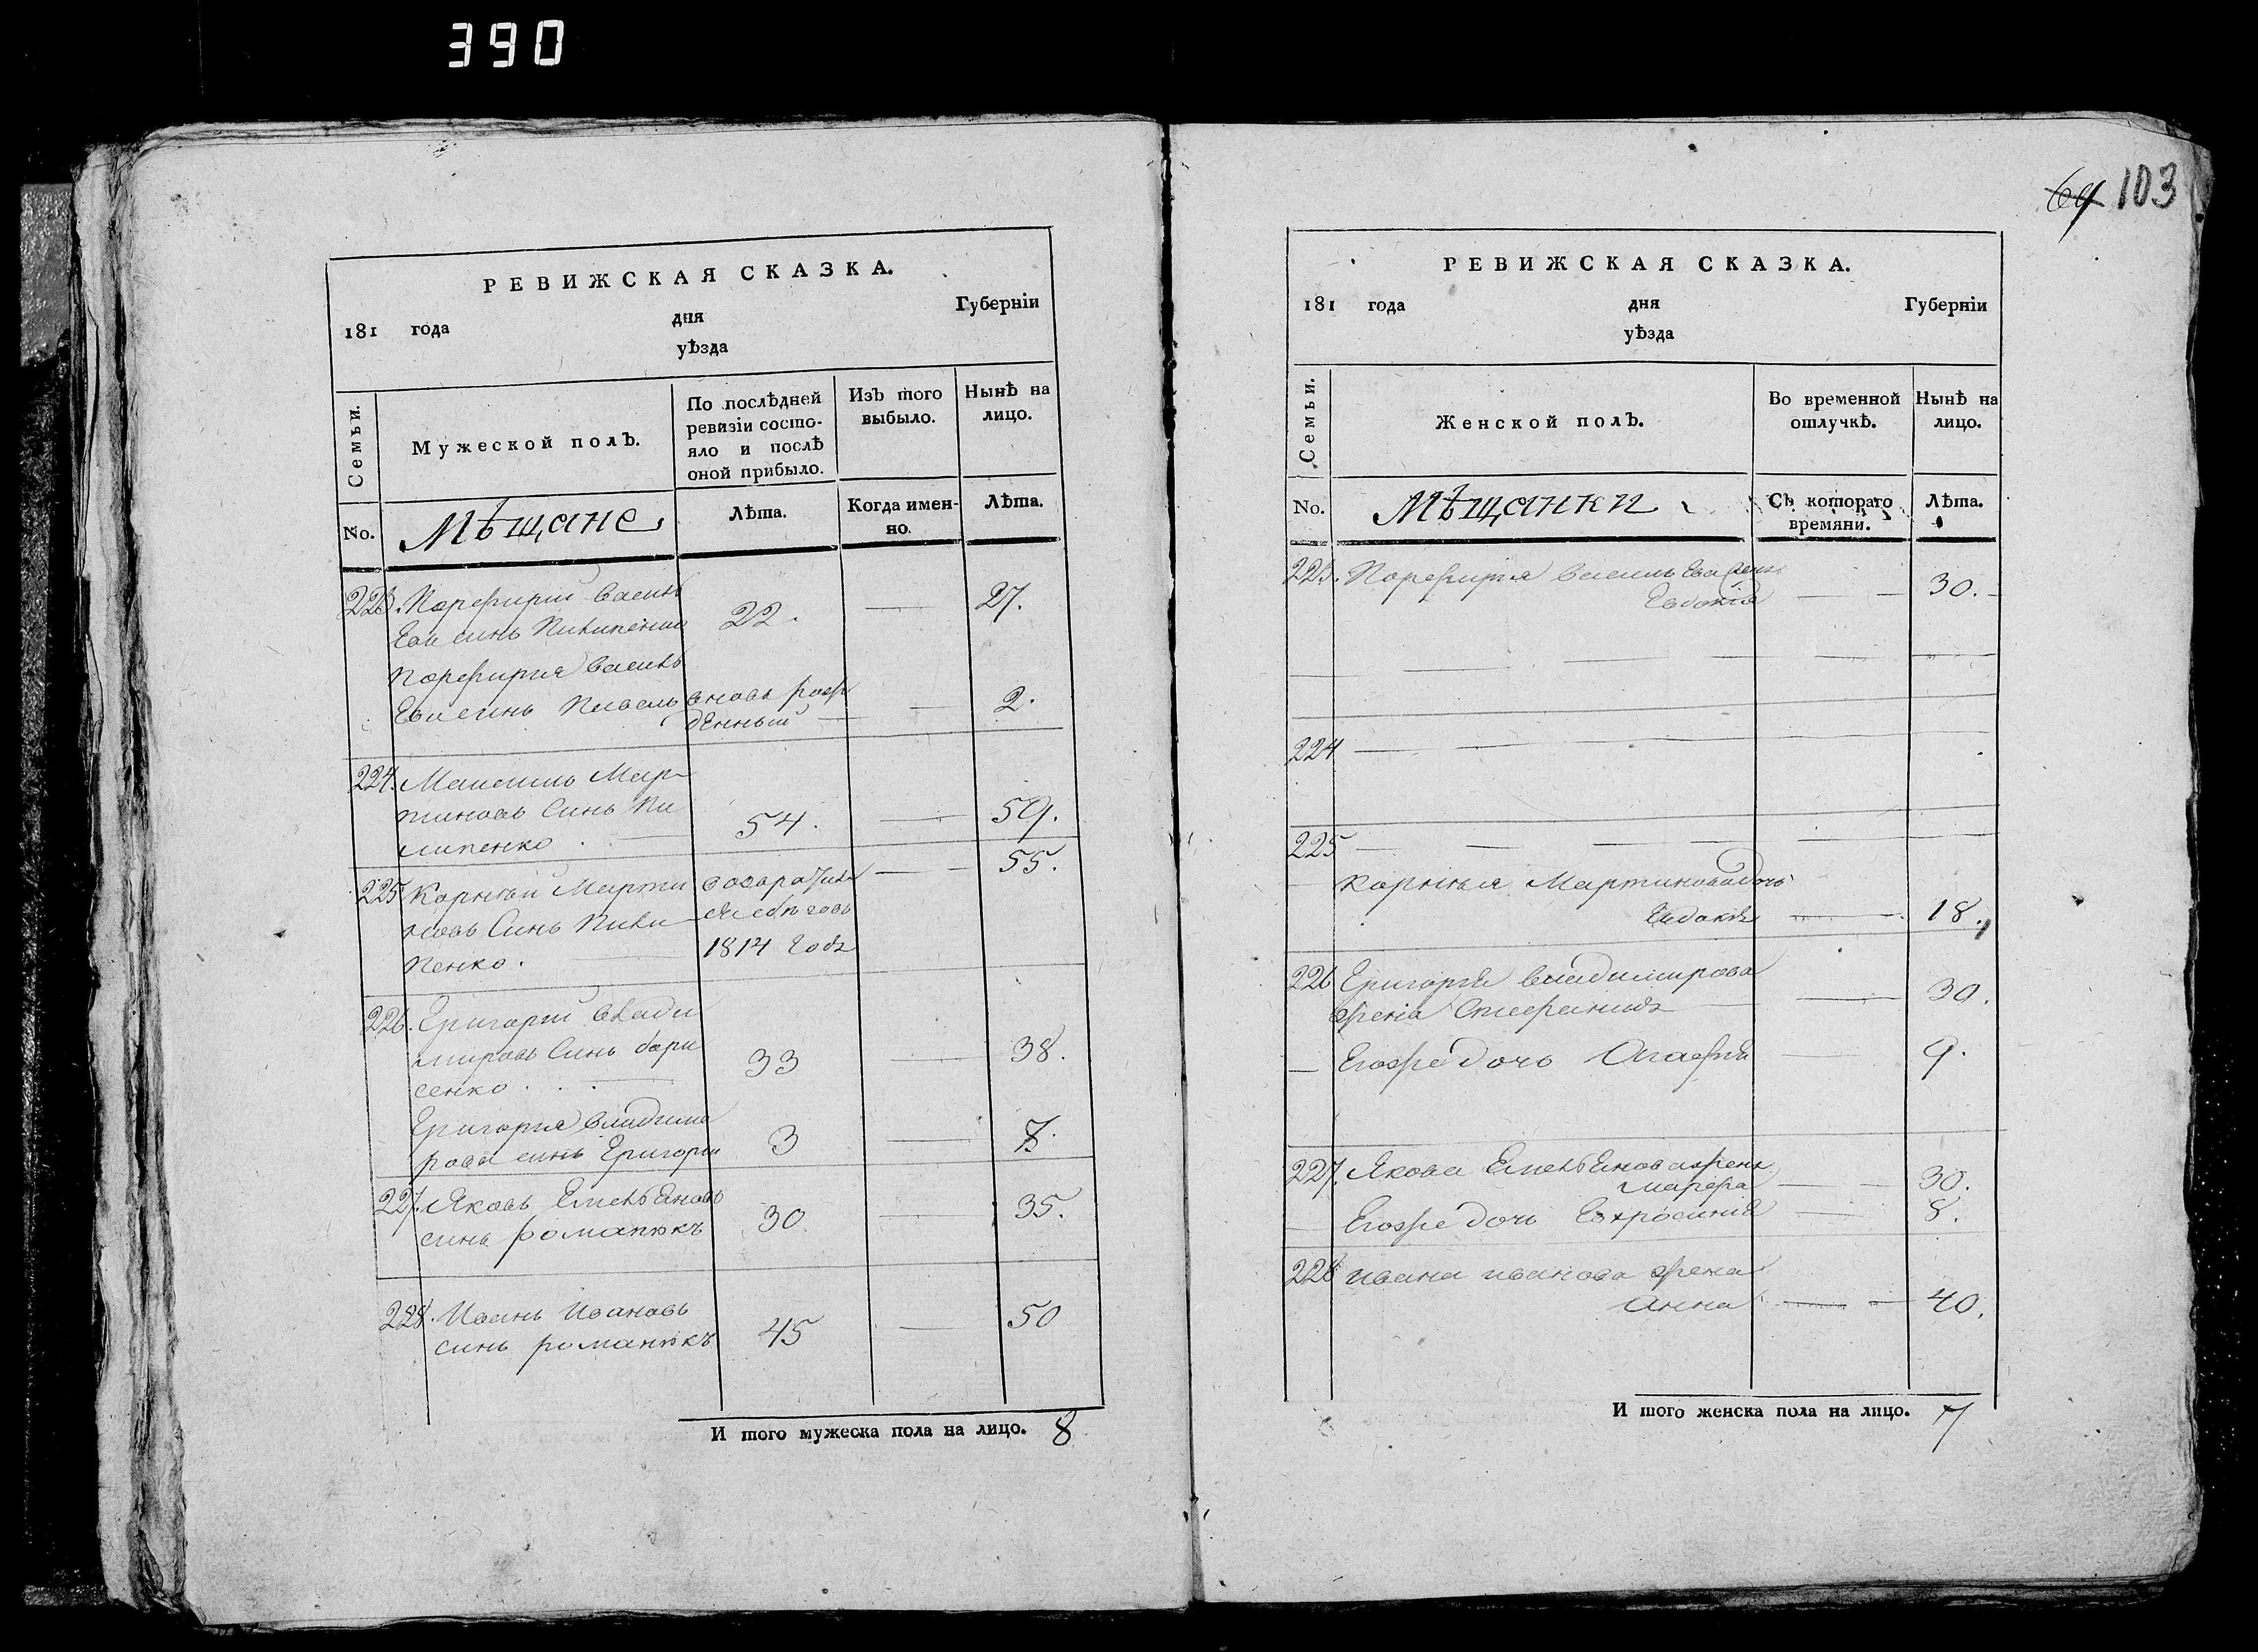 390
РЕВИЖСКАЯ СКАЗКА.
181 года дня Губерніи
уѣзда
Семьи.
Мужеской полъ.
По послѣдней ревизіи состояло и послѣ оной прибыло.
Изъ того выбыло.
Нынѣ на лицо.
No.
Мѣщане
Лѣта.
Когда именно.
Лѣта.
223. Порфирий Василь
евъ синъ Пилипенко 22. 27.
Порфирия Василь
ева синъ вновь рож
денный 2.
224. Мар
тиновъ Синъ Пи
липенко 54. 59.
225 Корнѣй Марти 55.
новъ Синъ Пили
пенко. 1814 Года
226. Григорий Влади
мировъ Синъ бори 33 38.
сенко
Григория Владими
рова синъ Григорий 3
227. Яковъ Емельяновъ
синъ романюкъ 30. 35.
228. Иванъ Ивановъ
синъ романюкъ 45 50
И того мужеска пола на лицо. 8
103
РЕВИЖСКАЯ СКАЗКА.
181 года дня Губерніи
уѣзда
Семьи.
Женской полъ.
Во временной отлучкѣ.
Нынѣ на лицо.
No.
Мѣщанки
Съ котораго времяни.
Лѣта.
223. Порфирия Васильева жена
Евдокія 30.
224
225
Корнѣя Мартинова дочь
18.
226 Григория Владимирова
жена Стефанида 30.
Егоже дочь Агафія 9.
227. Якова Емельянова жена
марфа 30.
Егоже дочь 8.
228 ивана иванова жена
Анна 40.
И того женска пола на лицо. 7